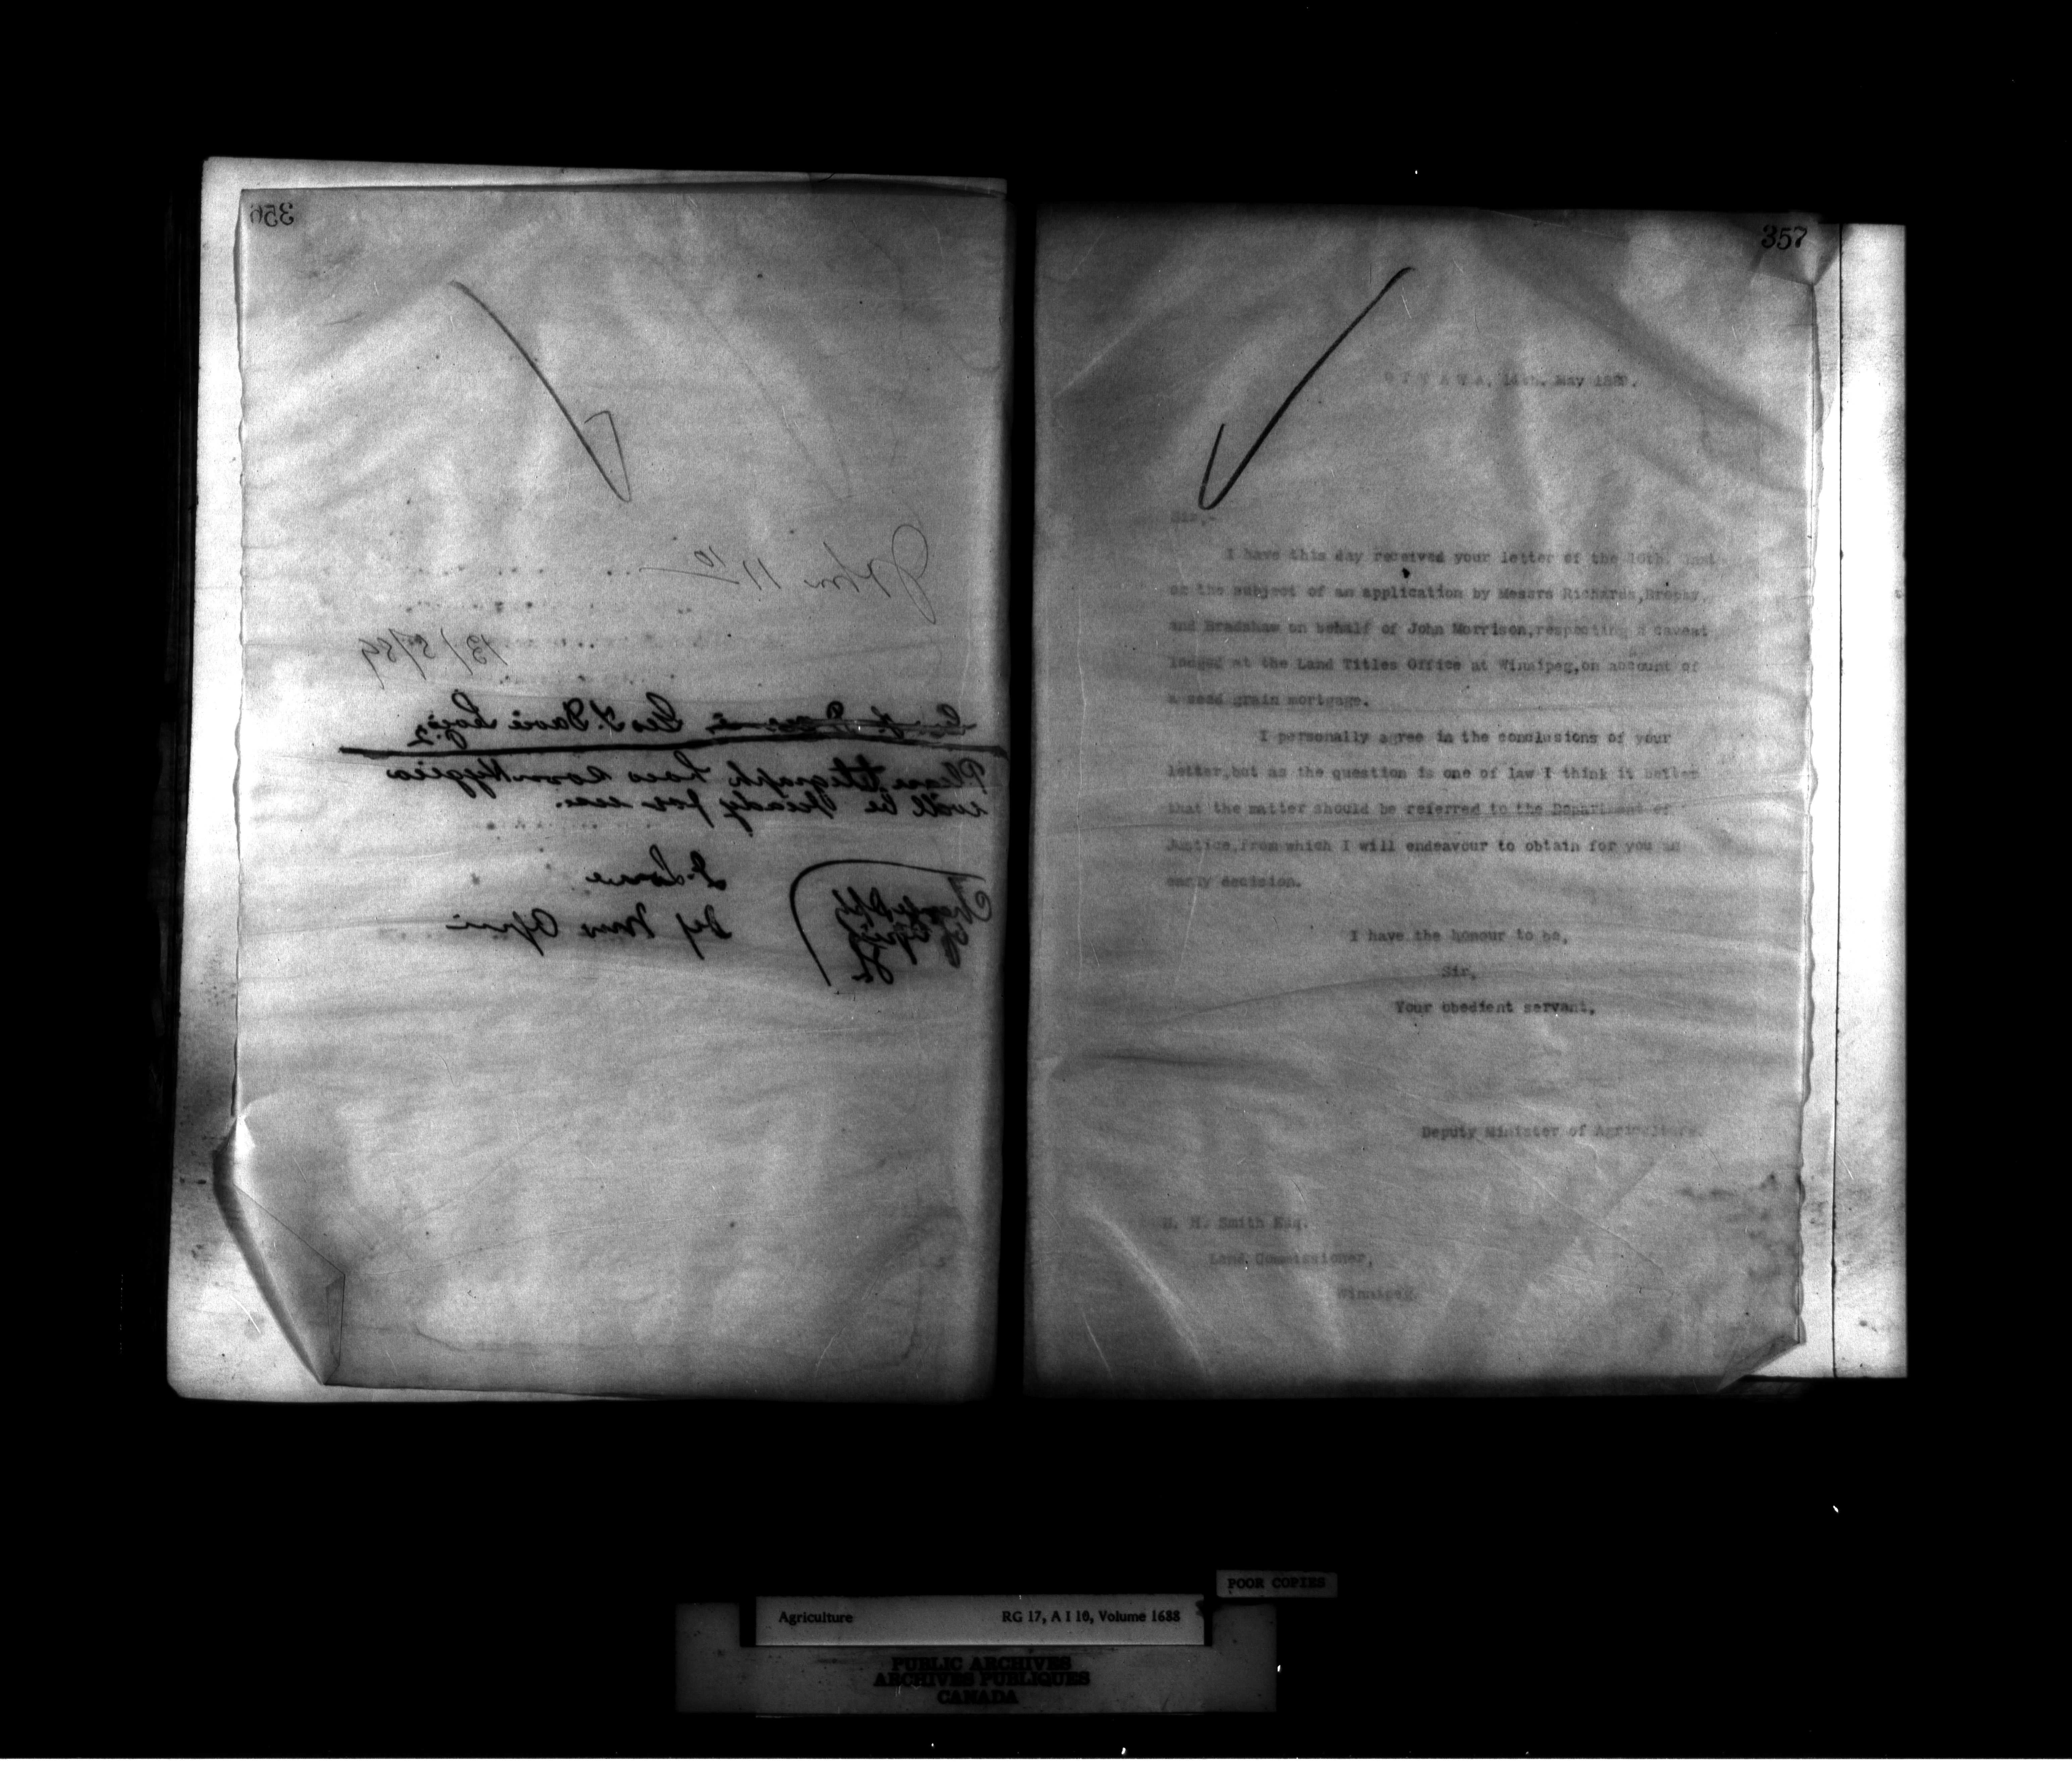 356
John 11 10
13/5/89
Geo T. Davie Levis
Please telegraph how soon Hygeia
will be ready for use.
J. Lowe
Dep Min Agri
357
O T T A W A, 14th. May 1889.
Sir,-
I have this day received your letter of the 10th. inst
on the subject of an application by Messrs Richards, Brophy,
and Bradshaw on behalf of John Morrison, respecting a caveat
lodged at the Land Titles Office at Winnipeg, on account of
a seed grain mortgage.
I personally agree in the conclusions of your
letter, but as the question is one of law I think it better
that the matter should be referred to the Department of
Justice, from which I will endeavour to obtain for you an
early decision.
I have the honour to be,
Sir,
Your obedient servant,
Deputy Minister of Agriculture.
H. H. Smith Esq.
Land Commissioner,
Winnipeg.
POOR COPIES
Agriculture RG 17, A I 10, Volume 1688
PUBLIC ARCHIVES
ARCHIVES PUBLIQUES
CANADA